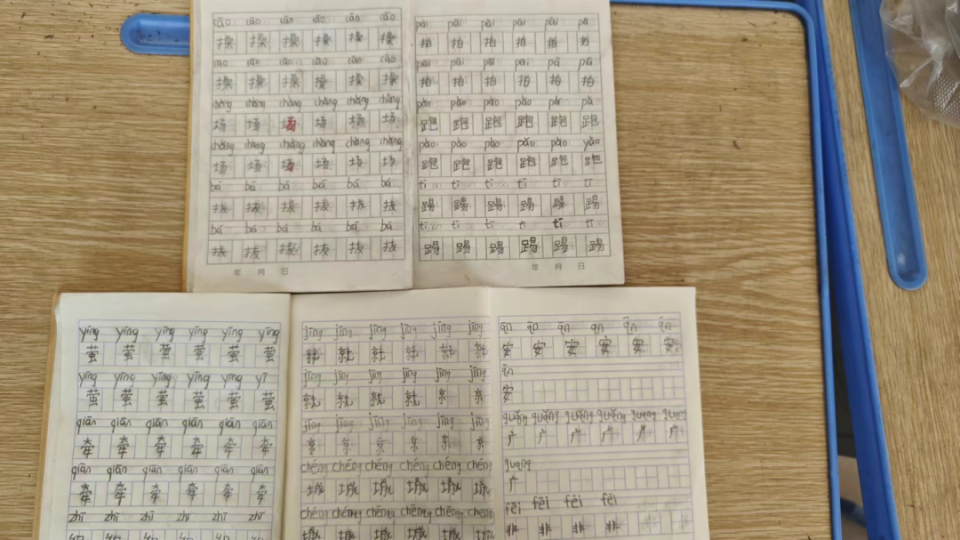 cāo cāo cāo cāo cāo cāo
操 操 操 操 操 操
cāo cāo cāo cāo cāo cāo
操 操 操 操 操 操
chǎng chǎng chǎng chǎng chǎng chǎng
场 场 场 场 场 场
chǎng chǎng chǎng chǎng chǎng chǎng
场 场 场 场 场 场
bá bá bá bá bá bá
拔 拔 拔 拔 拔 拔
bá bá bá bá bá bá
拔 拔 拔 拔 拔 拔
年 月 日
pāi pāi pāi pāi pāi pāi
拍 拍 拍 拍 拍 拍
拍 拍 拍 拍 拍 拍
跑 跑 跑 跑 跑 跑
pǎo pǎo pǎo pǎo pǎo
跑 跑 跑 跑 跑 跑
tī tī tī tī tī tī
踢 踢 踢 踢 踢 踢
tī tī tī tī tī tī
踢 踢 踢 踢 踢 踢
年 月 日
yíng yíng yíng yíng yíng yíng
萤 萤 萤 萤 萤 萤
yíng yíng yíng yíng yíng yí
萤 萤 萤 萤 萤 萤
qiān qiān qiān qiān qiān qiān
牵 牵 牵 牵 牵 牵
qiān qiān qiān qiān qiān qiān
牵 牵 牵 牵 牵 牵
zhī zhī zhī zhī zhī zhī
织 织 织 织 织
jīng jīng jīng jīng jīng jīng
jīng jīng jīng jīng jīng jīng
jīng jīng jīng jīng jīng jīng
京 京 京 京 京 京
chéng chéng chéng chéng chéng chéng
城 城 城 城 城 城
chéng chéng chéng chéng chéng chéng
城 城 城 城 城 城
安 安 安 安 安 安
安
guǎng guǎng guǎng guǎng guǎng guǎng
广 广 广 广 广 广
guǎng
广
fēi fēi fēi fēi
非 非 非 非